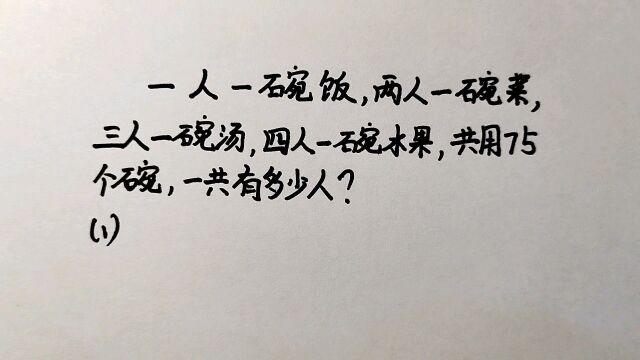 一人一碗饭,两人一碗菜,
三人一碗汤,四人一碗水果,共用75
个碗,一共有多少人?
(1)